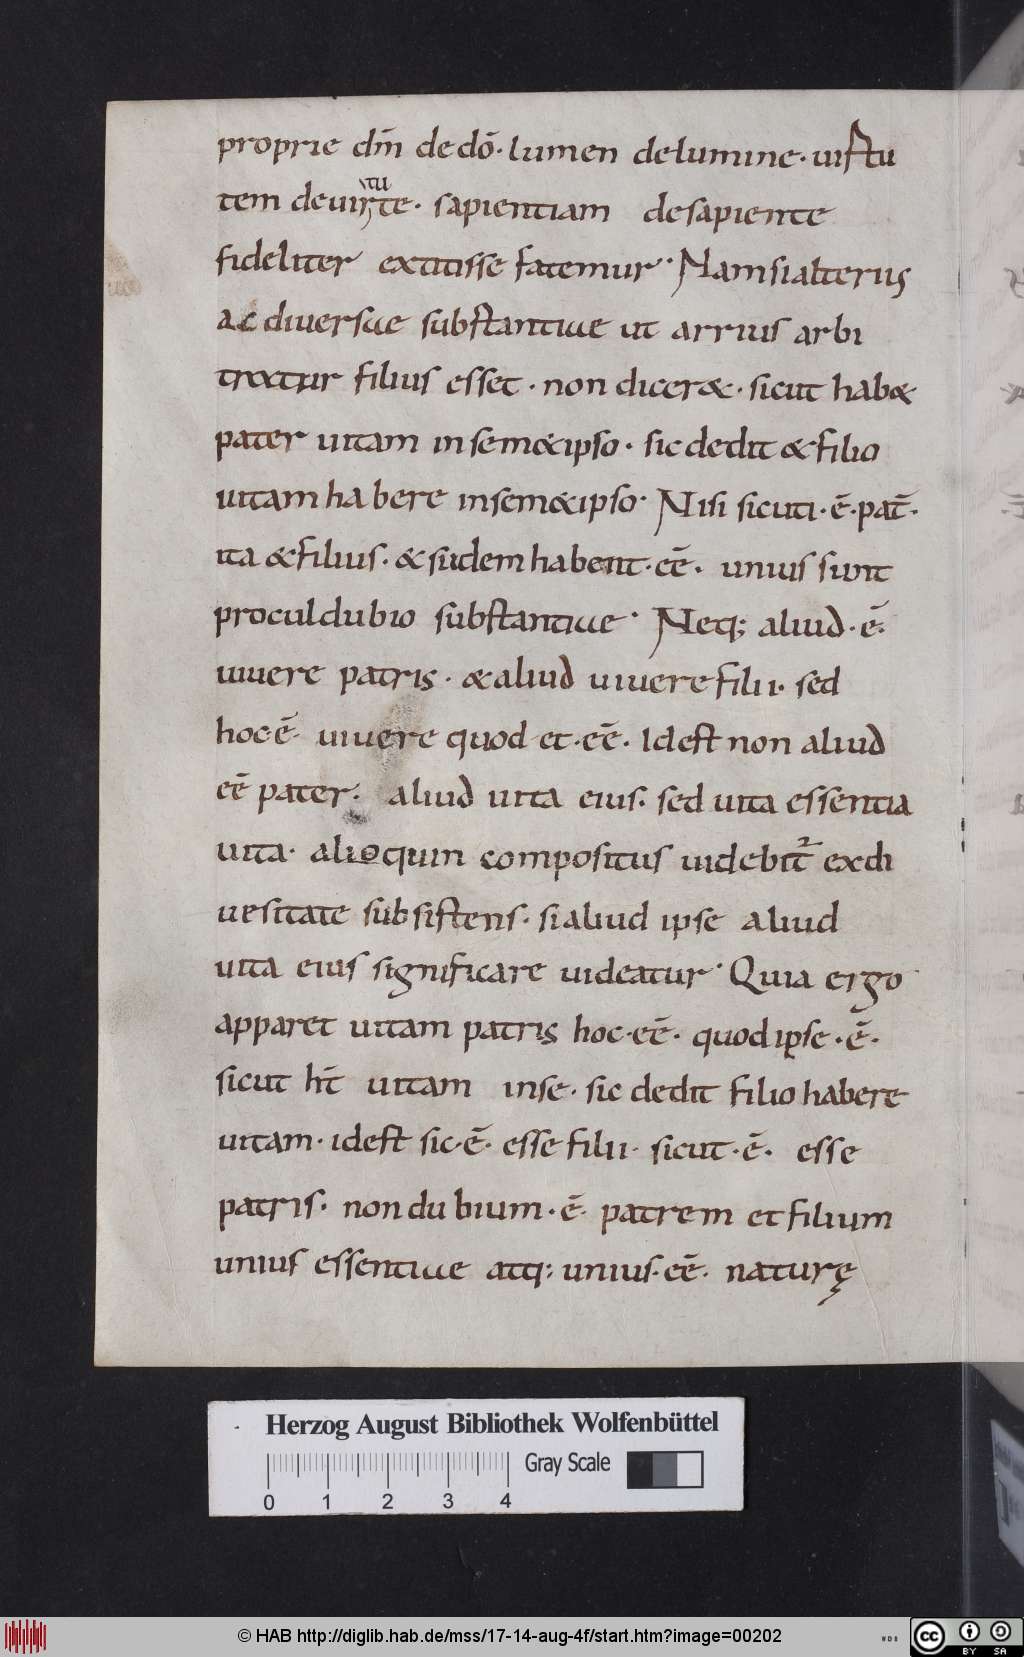 proprie dm̄ de dō· lumen de lumine· uirtu
tem de uirtute· sapientiam de sapiente
fideliter extitisse fatemur· Nam si alterius
ac diuersae substantiae ut arrius arbi
tratur filius esset· non diceret&· sicut hab&
pater uitam in sem&ipso· sic dedit & filio
uitam habere in sem&ipso· Nisi sicuti·ē·pat̄·
ita & filius· & sudem habent·eē· unius sunt
proculdubio substantiae· Neq; aliud·ē·
uiuere patris· & aliud uiuere filii· sed
hoc ē uiuere quod et·eē· Idest non aliud
eē pater· aliud uita eius· sed uita essentia
uita· alioquin compositus uidebit̄ ex di
uersitate subsistens· si aliud ipse aliud
uita eius significare uideatur· Quia ergo
apparet uitam patris hoc·eē· quod ipse·ē·
sicut ht̄ uitam in se· sic dedit filio habere
uitam· idest sic·ē· esse filii· sicut·ē· esse
patris· non dubium·ē· patrem et filium
unius essentiae atq; unius·eē· naturę
Herzog August Bibliothek Wolfenbüttel
Gray Scale
0 1 2 3 4
© HAB http://diglib.hab.de/mss/17-14-aug-4f/start.htm?image=00202
WDB
cc BY SA